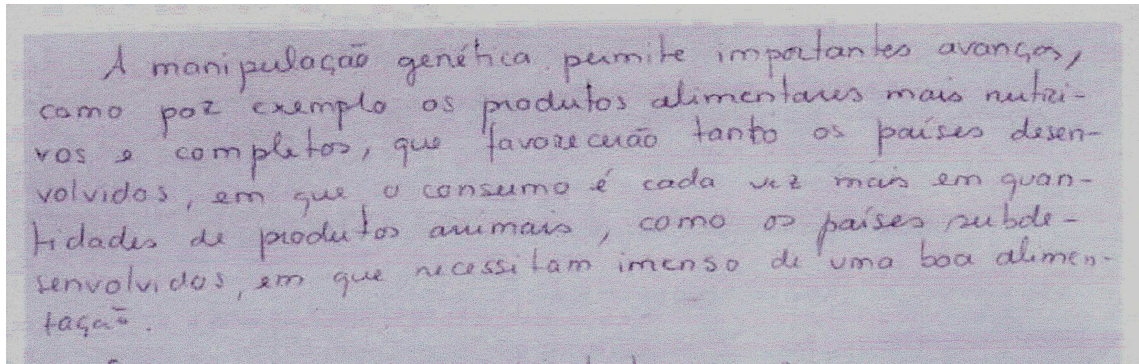 A manipulação genética permite importantes avanços,
como por exemplo os produtos alimentares mais nutri-
vos e completos, que favorecerão tanto os países desen-
volvidos, em que o consumo é cada vez mais em quan-
tidades de produtos animais, como os países subde-
senvolvidos, em que necessitam imenso de uma boa alimen-
tação.